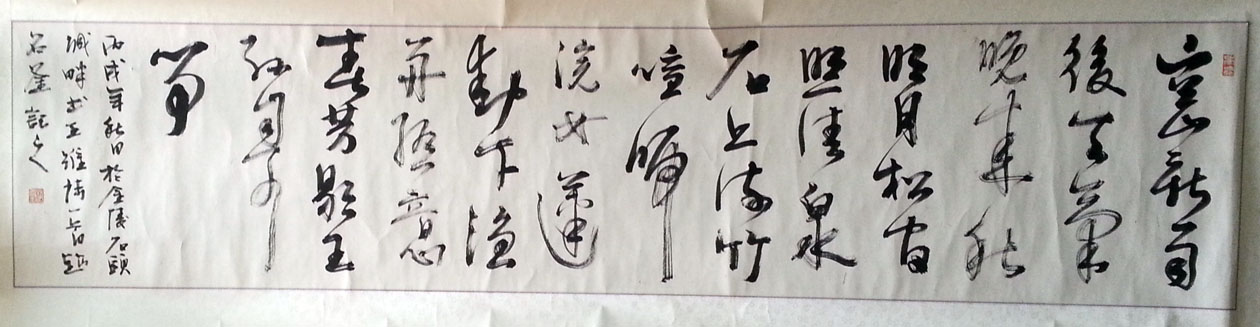 空山新雨
後天氣
晚來秋
明月松間
照清泉
石上流竹
喧歸
浣女蓮
動下漁
舟隨意
春芳歇王
孫自可
留
丙戌年秋日於金陵石頭
城畔書王維詩一首